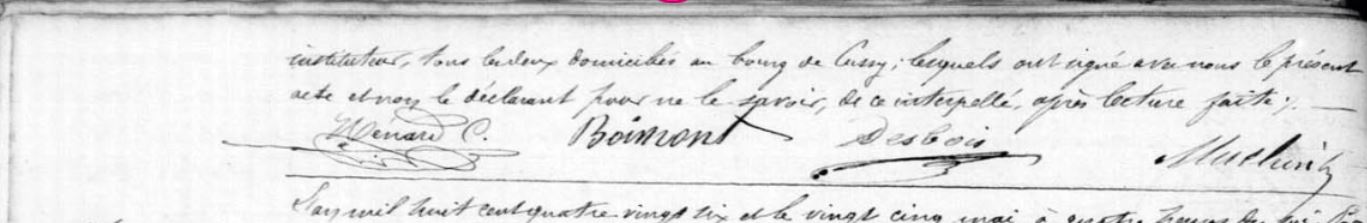 instituteur, tous les deux domiciliés au bourg de Cussy; lesquels ont signé avec nous le présent
acte et non le déclarant pour ne le savoir, de ce interpellé, après lecture faite ;. —
Ménard C. Boimont Desbois
L'an mil huit cent quatre-vingt six et le vingt cinq mai à quatre heures du